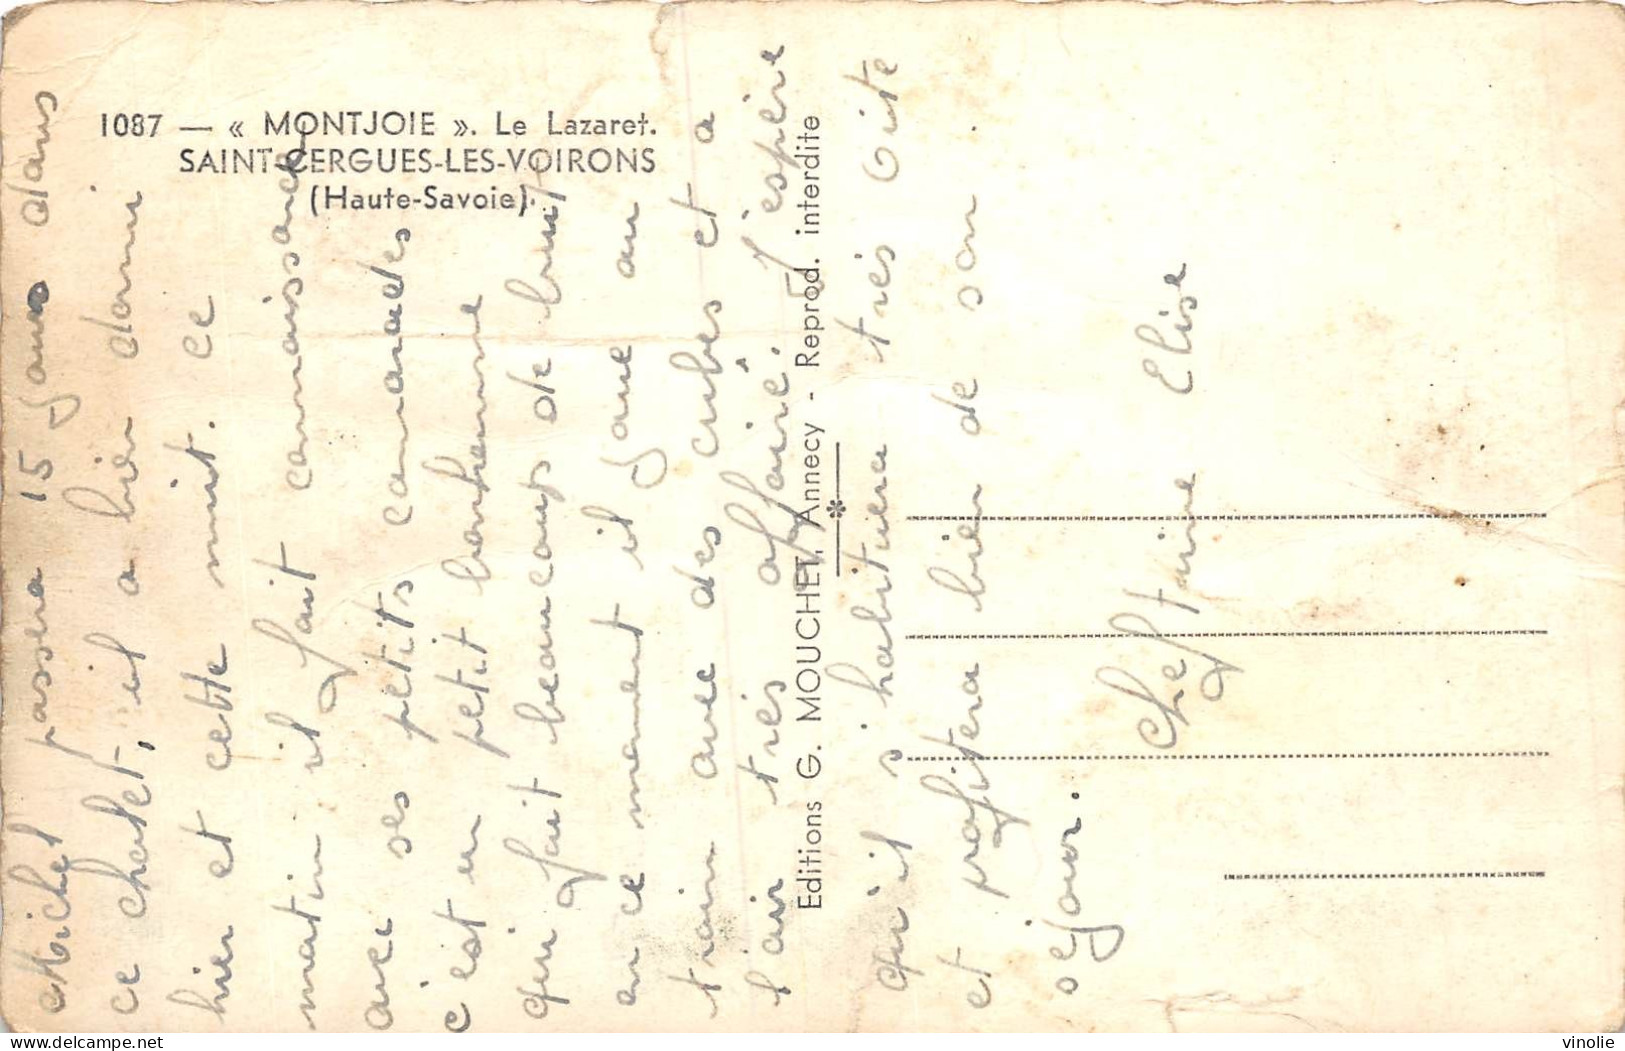 1087 — « MONTJOIE ». Le Lazaret.
SAINT-CERGUES-LES-VOIRONS
(Haute-Savoie).
Michel passera 15 jours dans
ce chalet, il a bien dormi
hier et cette nuit. ce
matin il fait connaissance
avec ses petits camarades
c'est un petit bonhomme
qui fait beaucoup de bruit
en ce moment il joue au
train avec des cubes et a
l'air très affairé. J'espère
qu'il s'habituera très vite
et profitera bien de son
séjour.
Cheftaine Elise
Editions G. MOUCHET, Annecy - Reprod. interdite
www.delcampe.net
vinolie